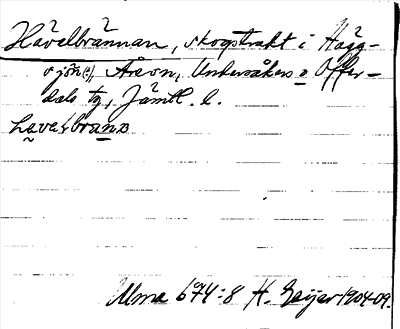 Hävelbrännan, skogstrakt i Hägg-
sjön(?) Åreon, Undersåkers o Offer-
dals tg, Jämtl. l.
havelbrana
Ulma 674:8 H. Geijer 1904-09.